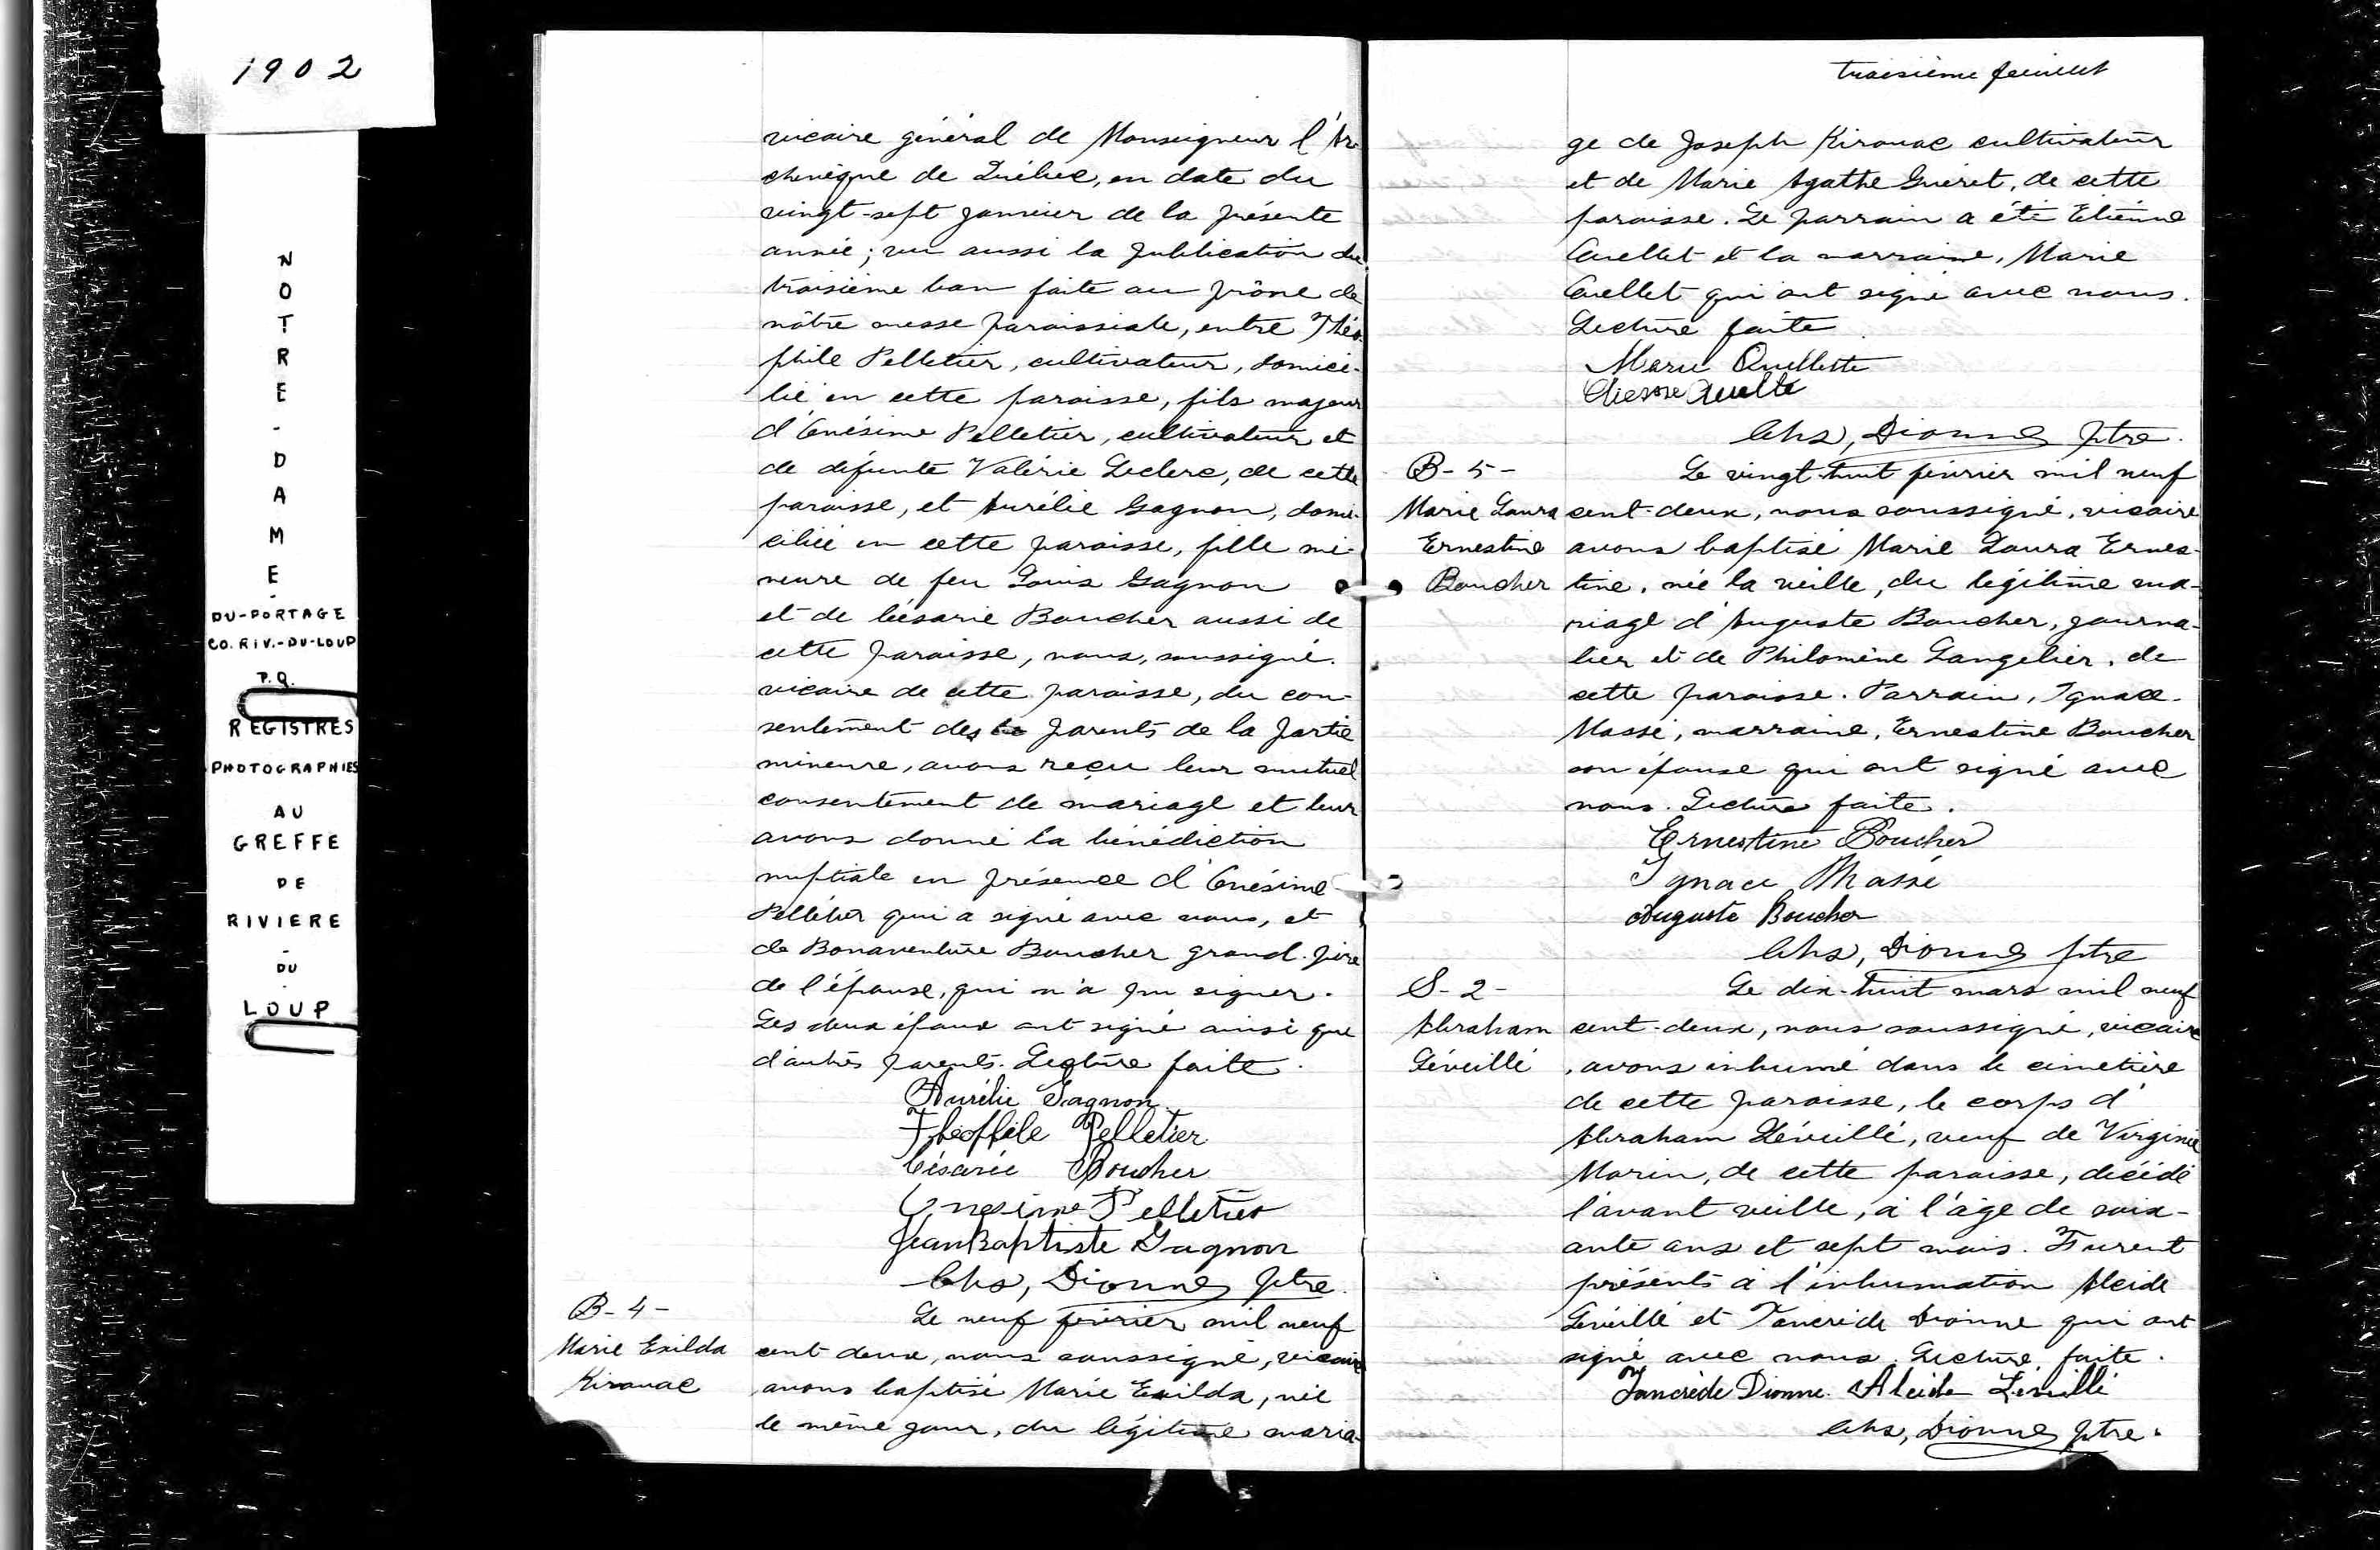 1902
NOTRE-DAME-
DU-PORTAGE
CO. RIV.-DU-LOUP
P.Q.
REGISTRES
PHOTOGRAPHIES
AU
GREFFE
DE
RIVIERE
-
DU
-
LOUP
vicaire général de Monseigneur l'Ar-
chevêque de Québec, en date du
vingt-sept janvier de la présente
année; vu aussi la publication du
troisième ban faite au prône de
nôtre messe paroissiale, entre Théo-
phile Pelletier, cultivateur, domici-
lié en cette paroisse, fils majeur
d'Onésime Pelletier, cultivateur et
de défunte Valérie Leclerc, de cette
paroisse, et Aurélie Gagnon, domi-
ciliée en cette paroisse, fille mi-
neure de feu Louis Gagnon
et de Césarie Boucher aussi de
cette paroisse, nous, soussigné.
vicaire de cette paroisse, du con-
sentement des parents de la partie
mineure, avons reçu leur mutuel
consentement de mariage et leur
avons donné la bénédiction
nuptiale en présence d'Onésime
Pelletier qui a signé avec nous, et
de Bonaventure Boucher grand-père
de l'épouse, qui n'a pu signer.
Les deux époux ont signé ainsi que
d'autres parents. Lecture faite.
Aurélie Gagnon
Théoffile Pelletier
Césarie Boucher
Onesime Pelletier
Jean Baptiste Gagnon
Chs, Dionne ptre.
B-4-
Marie Exilda
Kirouac
Le neuf février mil neuf
cent deux, nous soussigné, vicaire
, avons baptisé Marie Exilda, née
le même jour, du légitime maria-
troisième feuillet
ge de Joseph Kirouac cultivateur
et de Marie Agathe Guéret, de cette
paroisse. Le parrain a été Etienne
Ouellet et la marraine, Marie
Ouellet qui ont signé avec nous.
Lecture faite.
Marie Ouellette
Chs, Dionne ptre.
B-5-
Marie Laura
Ernestine
Boucher
Le vingt-huit février mil neuf
cent-deux, nous soussigné, vicaire
avons baptisé Marie Laura Ernes-
tine, née la veille, du légitime ma-
riage d'Auguste Boucher, journa-
lier et de Philomène Langelier, de
cette paroisse. Parrain, Ignace
Massé, marraine, Ernestine Boucher
son épouse qui ont signé avec
nous. Lecture faite.
Ernestine Boucher
Ignace Massé
Auguste Boucher
Chs, Dionne ptre
S-2-
Abraham
Léveillé
Le dix-huit mars mil neuf
cent-deux, nous soussigné, vicaire
, avons inhumé dans le cimetière
de cette paroisse, le corps d'
Abraham Léveillé, veuf de Virginie
Morin, de cette paroisse, décédé
l'avant veille, à l'âge de soix-
ante ans et sept mois. Furent
présents à l'inhumation Alcide
Léveillé et Tancrède Dionne qui ont
signé avec nous. Lecture, faite.
Tancrède Dionne. Alcide Leveillé
Chs, Dionne ptre.